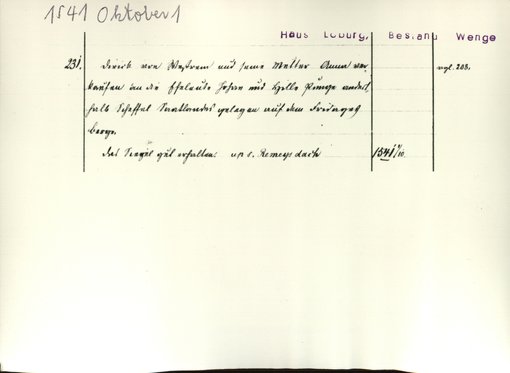 1541 Oktober 1
Haus Loburg, Bestand Wenge
231. Dirick von Westrem und seine Mutter Anna ver-
kaufen an die Eheleute Johan und Hille andert-
halb Scheffel Saatlandes gelegen auf dem
berge.
Das Siegel gut erhalten. up s. Remeys dach 1541 1/10
vgl. 203.